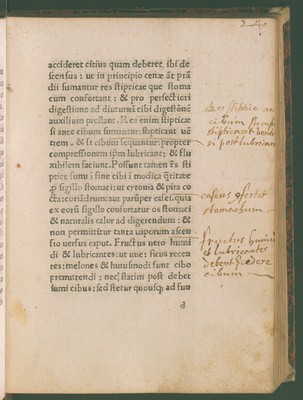 24.
accideret citius quam deberet, ibi de
scensus: ut in principio cenæ aut prā
dii sumantur res stipticæ quæ stoma
cum confortant: & pro perfectiori
digestione ad diuturnā cibi digestionē
auxilium prestant. Res enim stipticæ
si ante cibum sumantur: stipticant uē
trem. & si cibum sequantur: propter
compressionem ipm lubricant: & flu
xibilem faciunt. Possunt tamen res sti
pticæ sumi i fine cibi i modica q̃titate
p sigillo stomaci: ut cytonia & pira co
cta: coriādrum: aut parūper casei. quia
ex eorū sigillo confortatur os stomaci
& naturalis calor ad digerendum: &
non permittitur tanta uaporum ascen
sio versus caput. Fructus uero humi
di & lubricantes: ut uue: ficus recen
tes: melones & huiusmodi sunt cibo
premittendi: nec statim post debet
sumi cibus: sed stetur quousq; ad fun
d
Res stiptice an
cibum sumpte
stipticant ventrem
si post lubricant
caseus cōfortat
stomachum
Fructus humidi
et lubricantes
debent p̄cedere
cibum